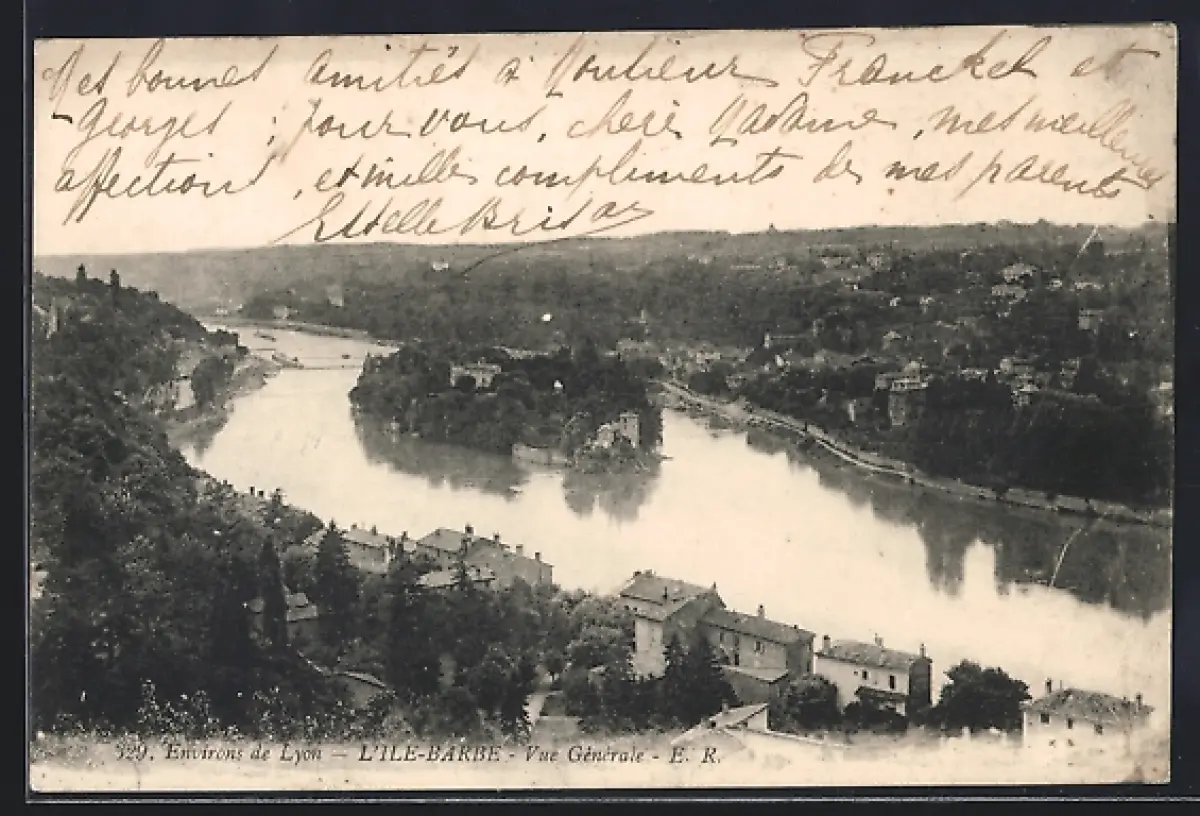 Mes bonnes amitiés à Monsieur Franckel et
Georges ; pour vous, chère Madame, mes meilleures
affections, et milles compliments de mes parents
Estelle
329. Environs de Lyon — L'ILE-BARBE - Vue Générale - E. R.